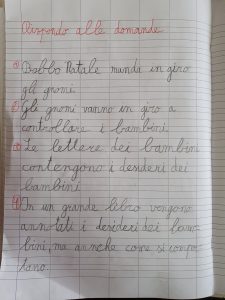 Rispondo alle domande
1) Babbo Natale manda in giro
gli gnomi.
2) Gli gnomi vanno in giro a
controllare i bambini.
3) Le lettere dei bambini
contengono i desideri dei
bambini.
4) In un grande libro vengono
annotati i desideri dei bam-
bini, ma anche come si compor-
tano.